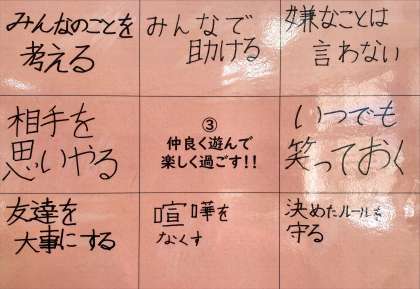 みんなのことを
考える
みんなで
助ける
嫌なことは
言わない
相手を
思いやる
③
仲良く遊んで
楽しく過ごす!!
いつでも
笑っておく
友達を
大事にする
喧嘩を
なくす
決めたルールを
守る